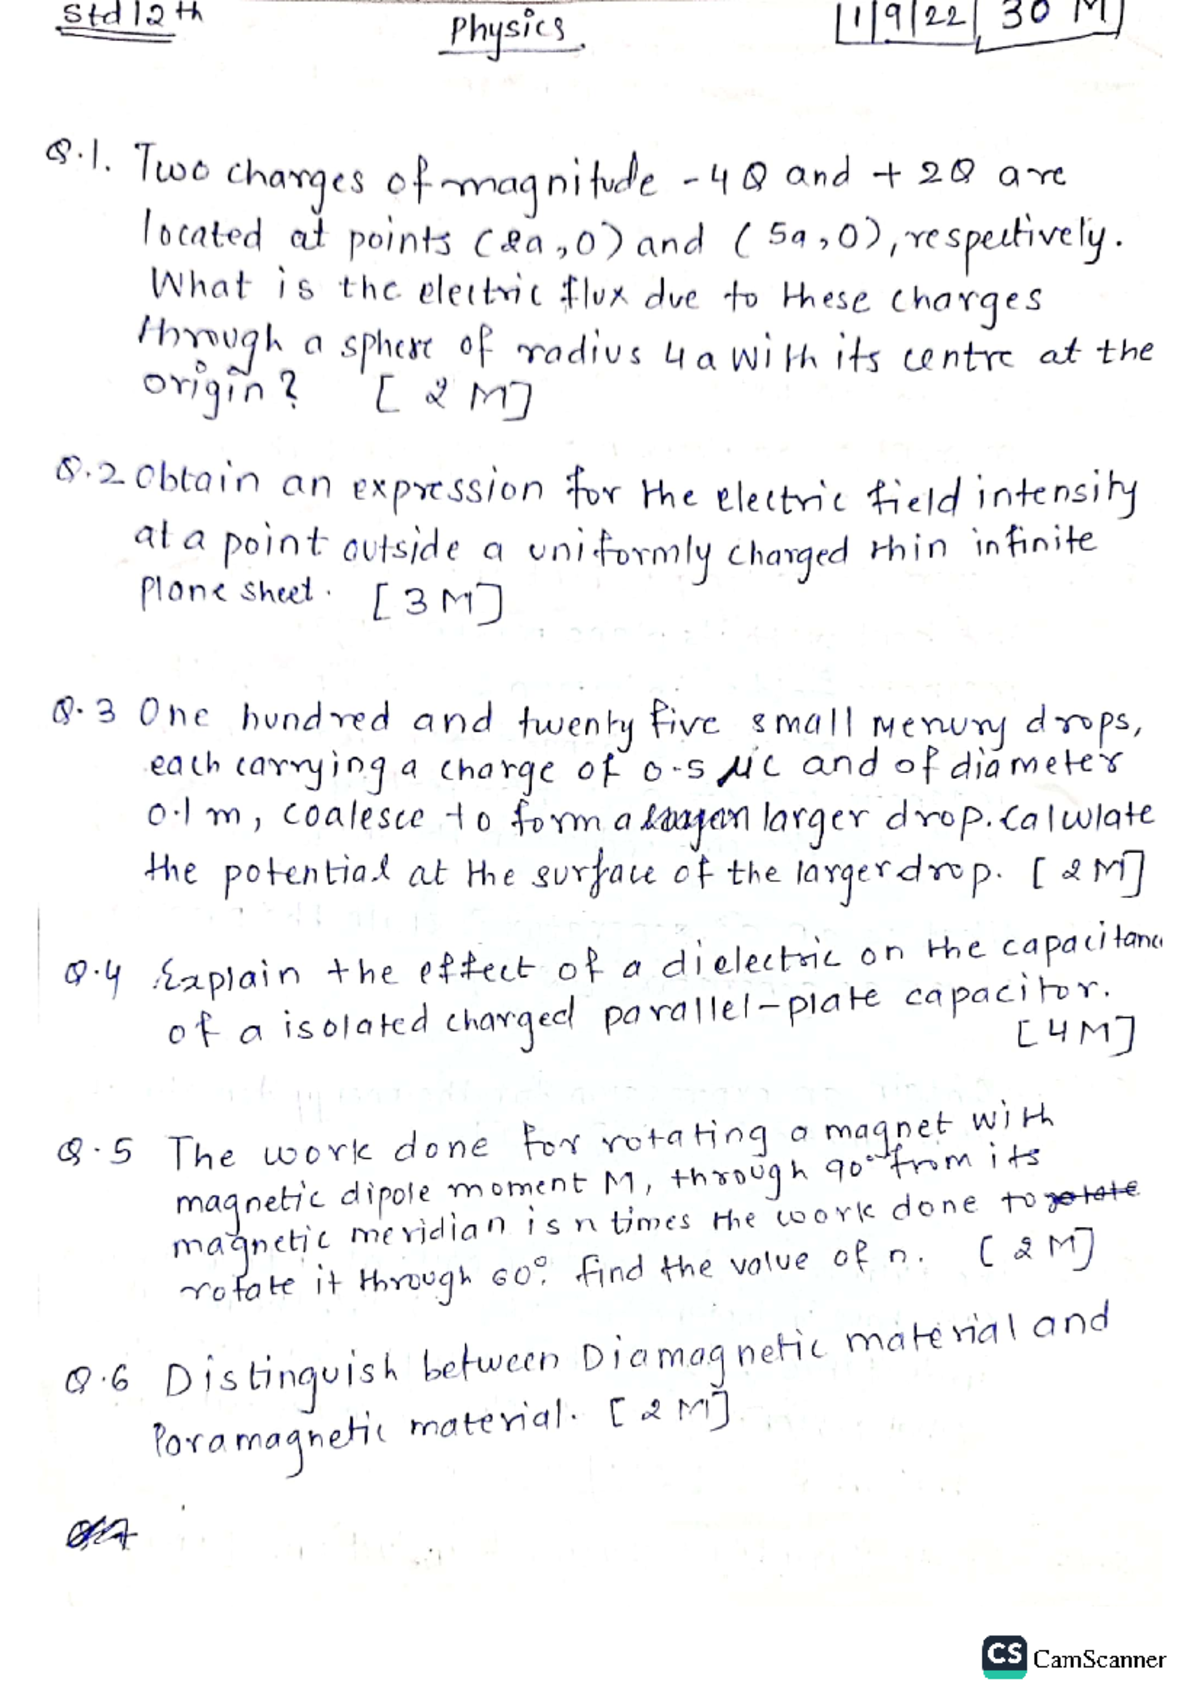 Std 12th
Physics.
1/9/22 30 M
Q.1. Two charges of magnitude -4Q and + 2Q are
located at points (2a,0) and (5a,0), respectively.
What is the electric flux due to these charges
through a sphere of radius 4a with its centre at the
origin? [2M]
Q.2 Obtain an expression for the electric field intensity
at a point outside a uniformly charged thin infinite
plane sheet. [3M]
Q.3 One hundred and twenty five small mercury drops,
each carrying a charge of 0.5 μC and of diameter
0.1 m, coalesce to form a larger drop. Calculate
the potential at the surface of the larger drop. [2M]
Q.4 Explain the effect of a dielectric on the capacitanc
of a isolated charged parallel-plate capacitor.
[4M]
Q.5 The work done for rotating a magnet with
magnetic dipole moment M, through 90° from its
magnetic meridian is n times the work done to rotate
rotate it through 60°. find the value of n. [2M]
Q.6 Distinguish between Diamagnetic material and
Paramagnetic material. [2M]
CS CamScanner